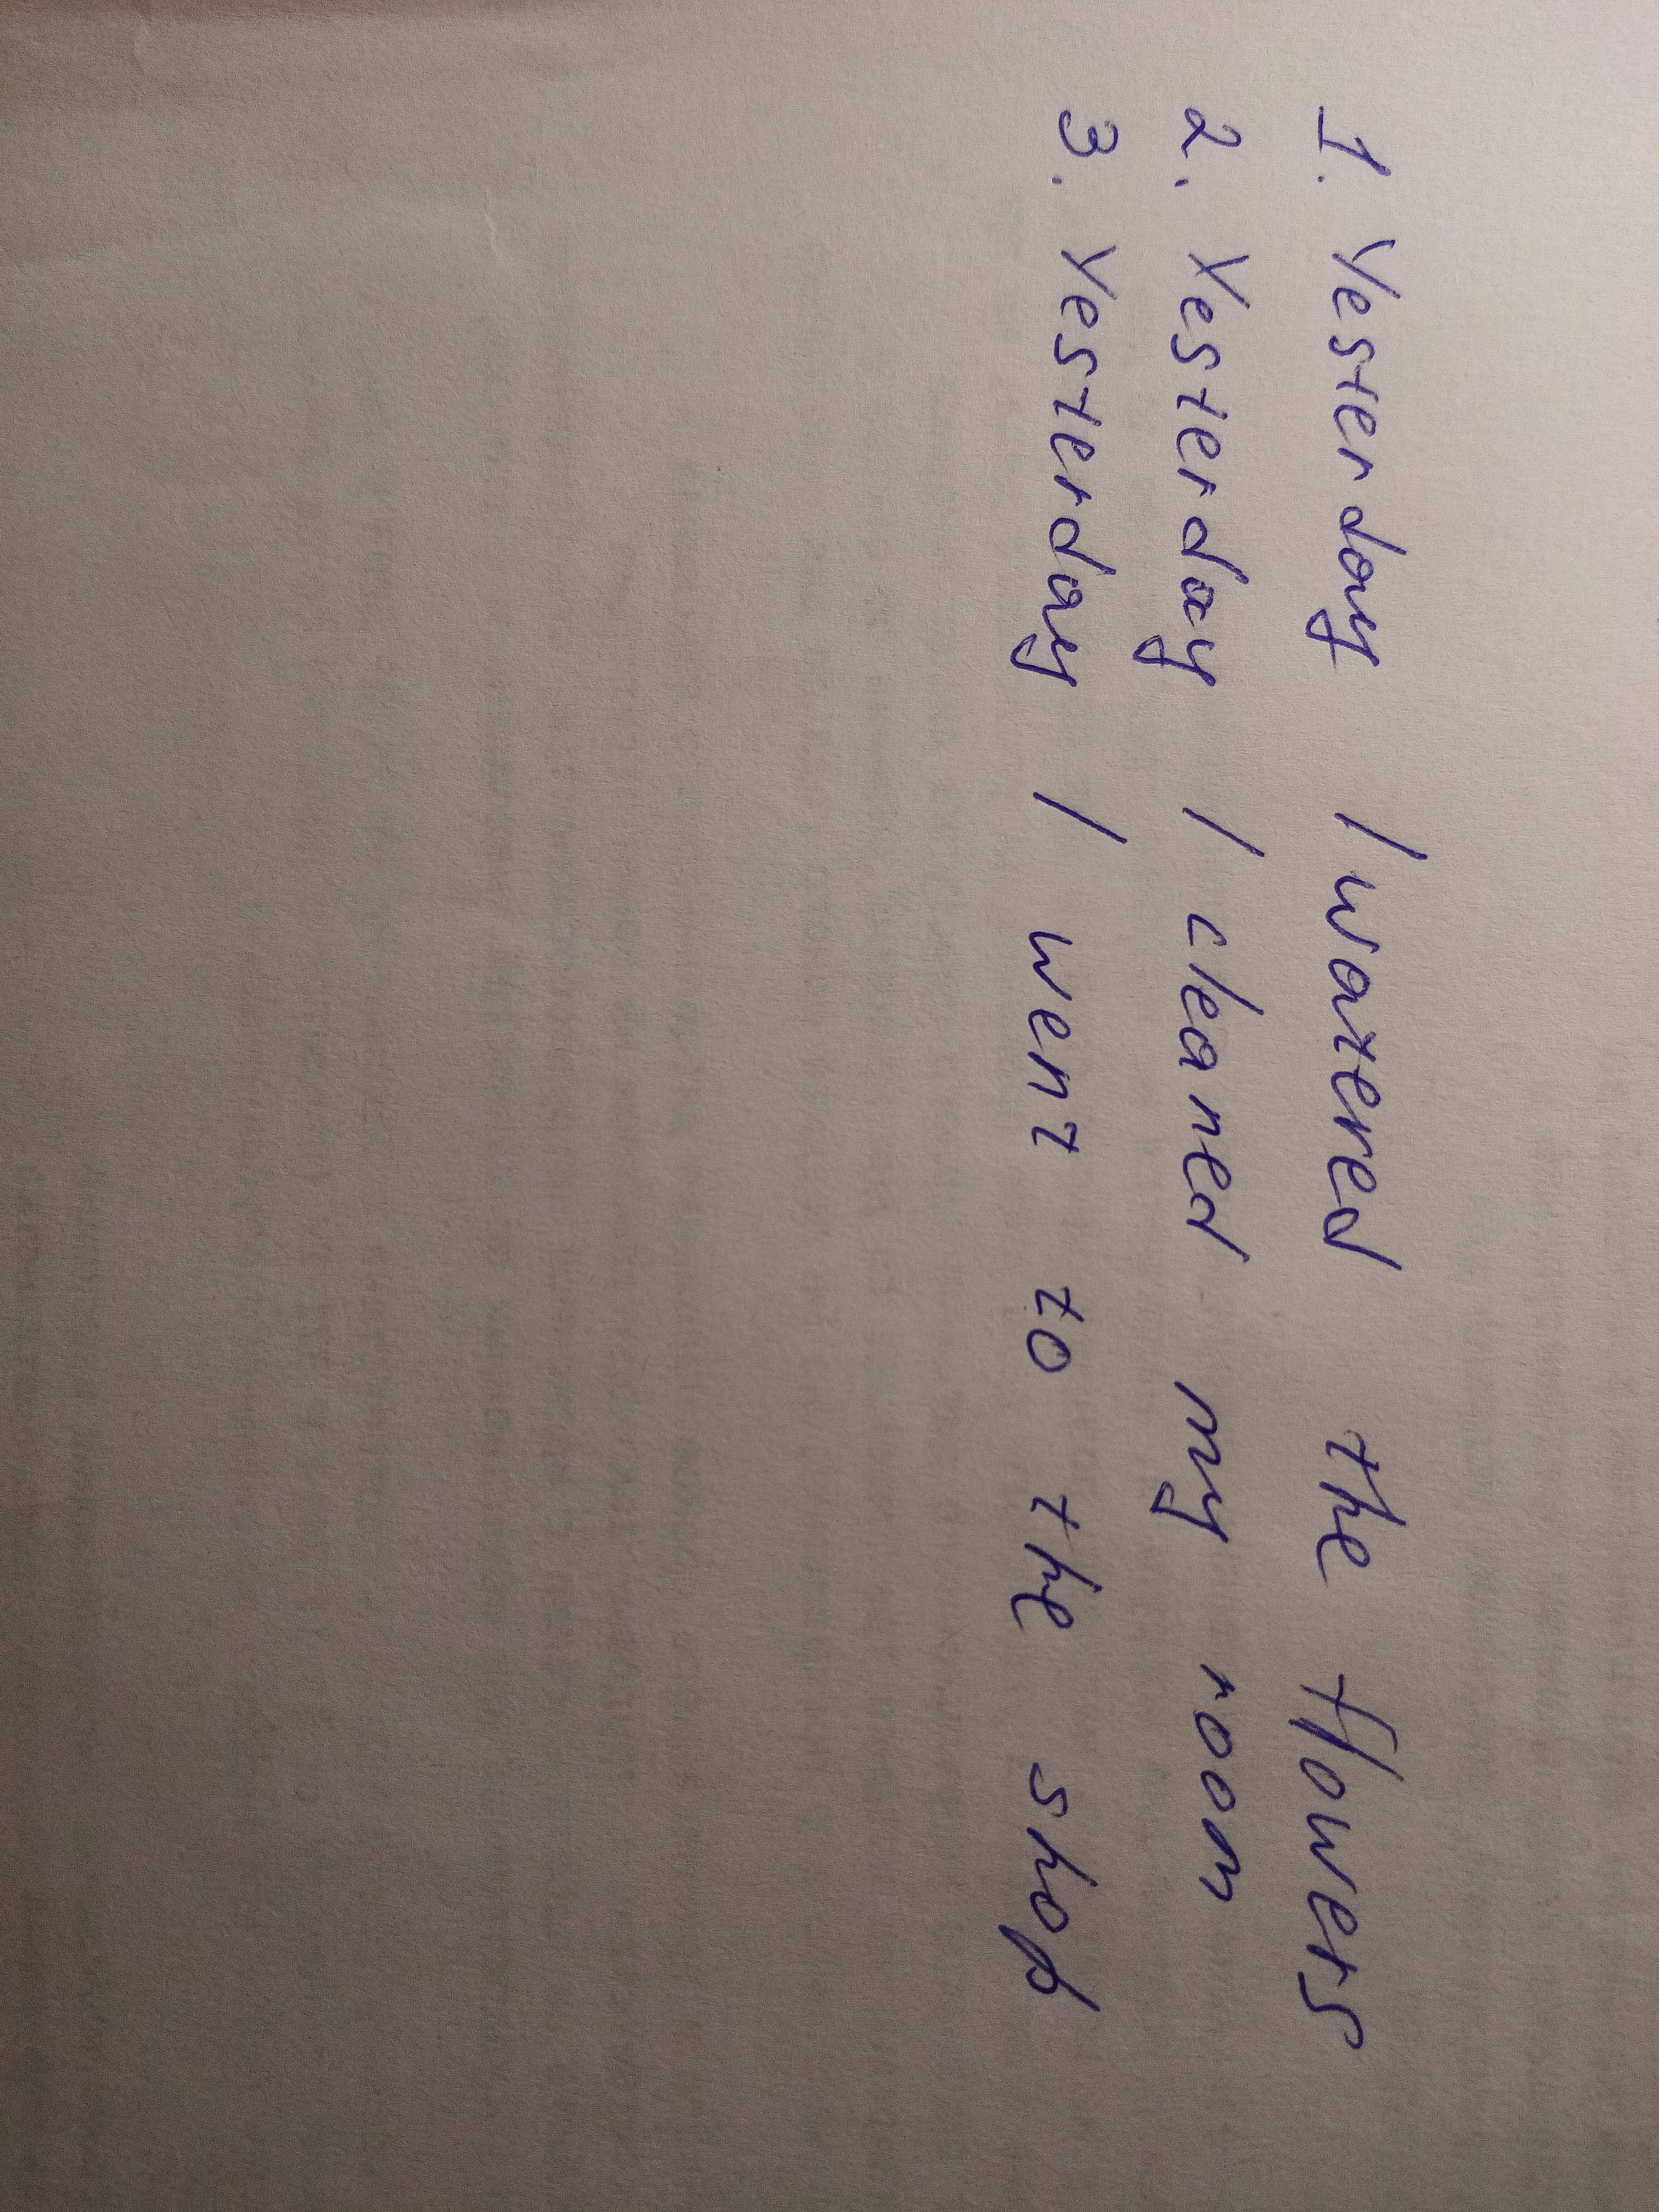 1. Yesterday I watered the flowers
2. Yesterday I cleaned my room
3. Yesterday I went to the shop